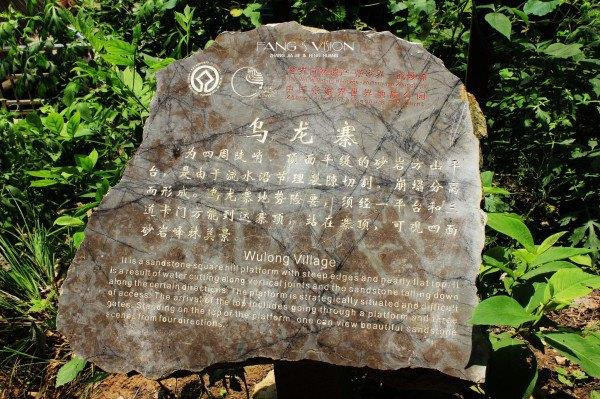 FANG'S VISION
ZHANG JIA JIE & FENG HUANG
乌龙寨
为四周陡峭，顶面平缓的砂岩方山平
台，是由于流水沿节理裂隙切割，崩塌分离
而形成。乌龙寨地势险景，须经一平台和三
道卡门方能到达寨顶，站在寨顶，可观四面
砂岩峰林美景
Wulong Village
It is a sandstone square hill platform with steep edges and pearly flat top. It
is a result of water cutting along vertical joints and the sandstone falling down
along the certain directions. The platform is strategically situated and difficult
of access. The arrival of the top includes going through a platform and three
gates. Standing on the top of the platform, one can view beautiful sandstone
scenes from four directions.